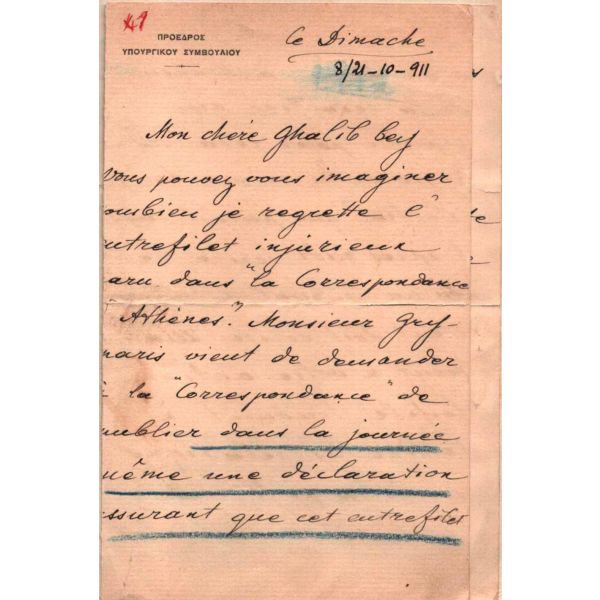 49
ΠΡΟΕΔΡΟΣ
ΥΠΟΥΡΓΙΚΟΥ ΣΥΜΒΟΥΛΙΟΥ
Ce Dimache
8/21-10-911
Mon chére Ghalib bey
vous pouvez vous imaginer
ombien je regrette l'
ntrefilet injurieux
aru dans "la Correspondance
d'Athènes". Monsieur Gry-
naris vient de demander
à la "Correspondance" de
ublier dans la journée
même une déclaration
ssurant que cet entrefilet